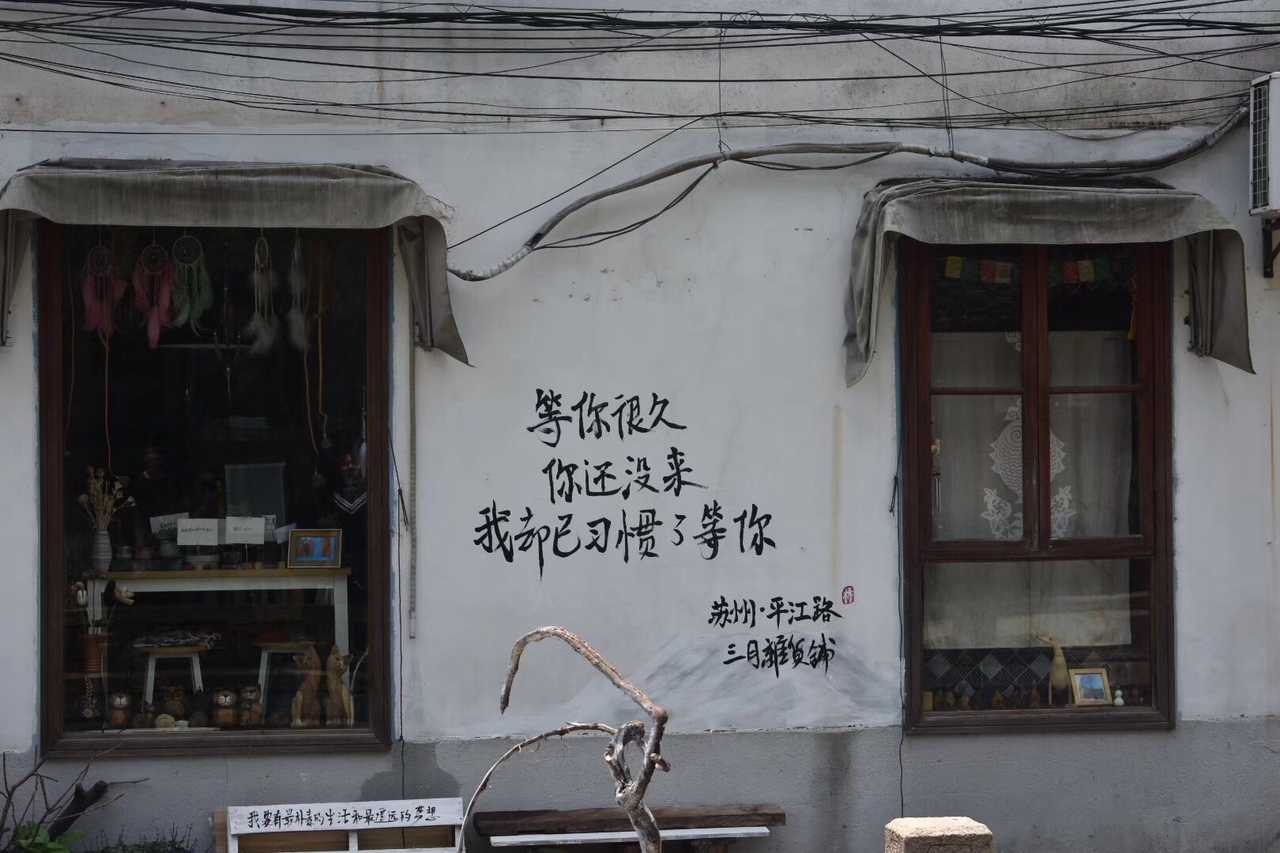 等你很久
你还没来
我却已习惯了等你
苏州·平江路
三月雜货铺
我要有最朴素的生活和最遥远的梦想